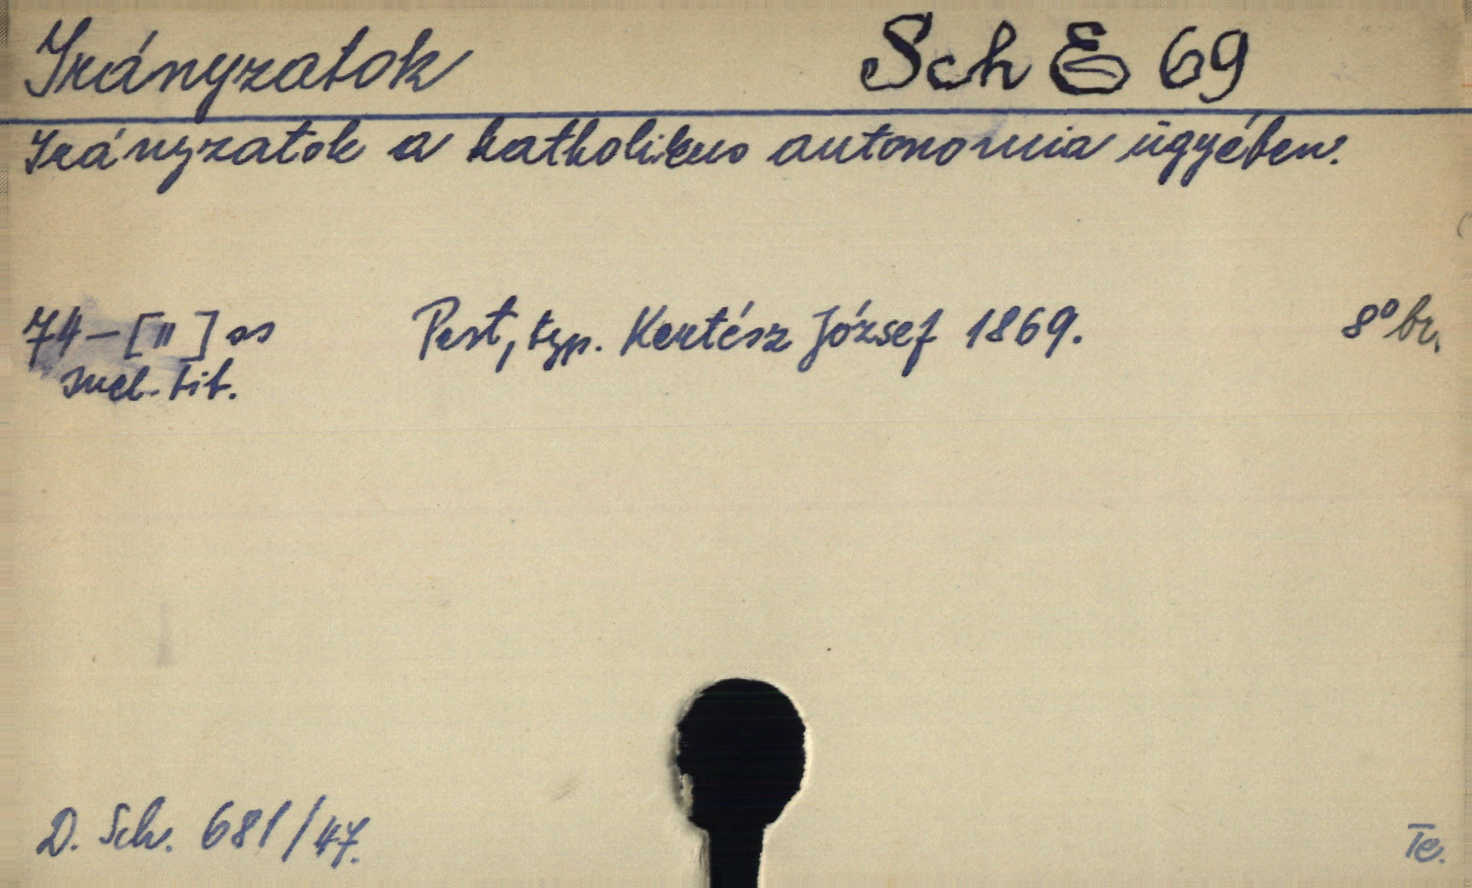 Irányzatok Sch E 69
Irányzatok a katholikus autonomia ügyében.
74–[II] ss Pest, typ. Kertész József 1869. 8° br.
incl. tit.
D. Sch. 681/47. Te.